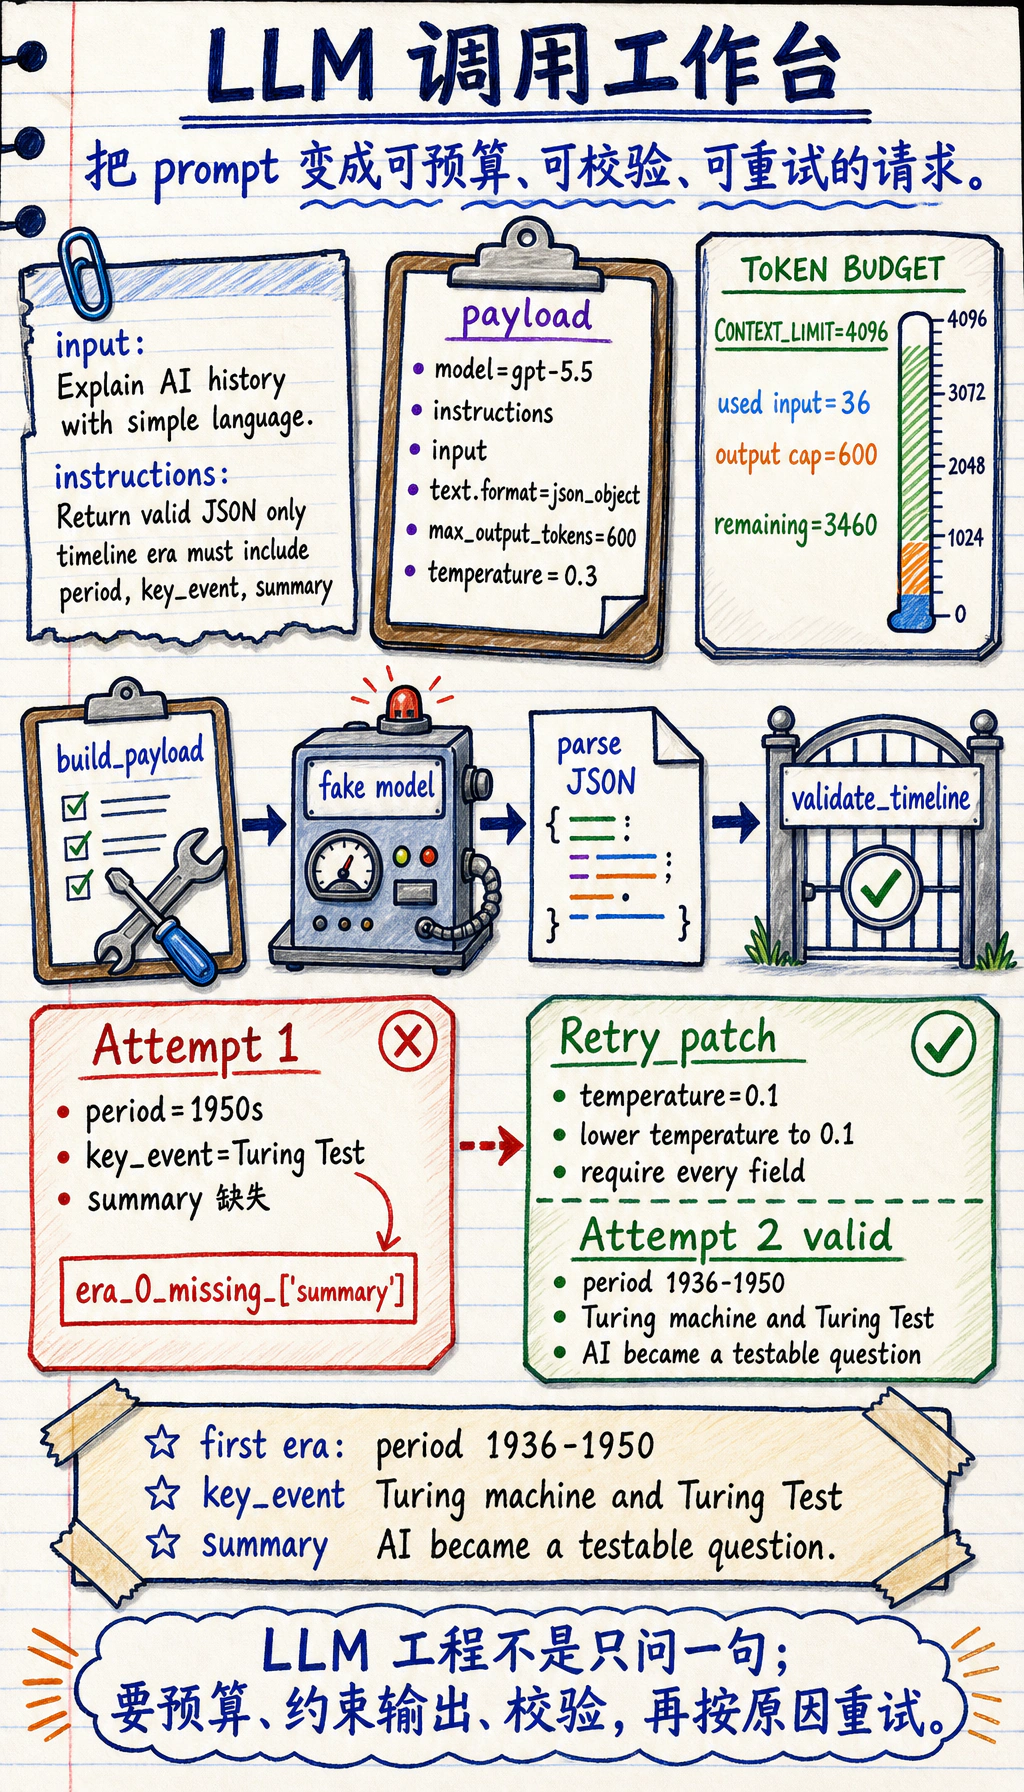 LLM 调用工作台
把 prompt 变成可预算、可校验、可重试的请求。
input:
Explain AI history
with simple language.
instructions:
Return valid JSON only
timeline era must include
period, key_event, summary
payload
• model=gpt-5.5
• instructions
• input
• text.format=json_object
• max_output_tokens=600
• temperature=0.3
TOKEN BUDGET
CONTEXT_LIMIT=4096
used input=36
output cap=600
remaining=3460
4096
3072
2048
1024
0
build_payload
fake model
parse
JSON
{ :
;
.
} }
validate_timeline
Attempt 1
• period=1950s
• key_event=Turing Test
• summary 缺失
era_0_missing_['summary']
Retry_patch
• temperature=0.1
• lower temperature to 0.1
• require every field
Attempt 2 valid
• period 1936-1950
• Turing machine and Turing Test
• AI became a testable question
☆ first era: period 1936-1950
☆ key_event Turing machine and Turing Test
☆ summary AI became a testable question.
LLM 工程不是只问一句;
要预算、约束输出、校验, 再按原因重试。